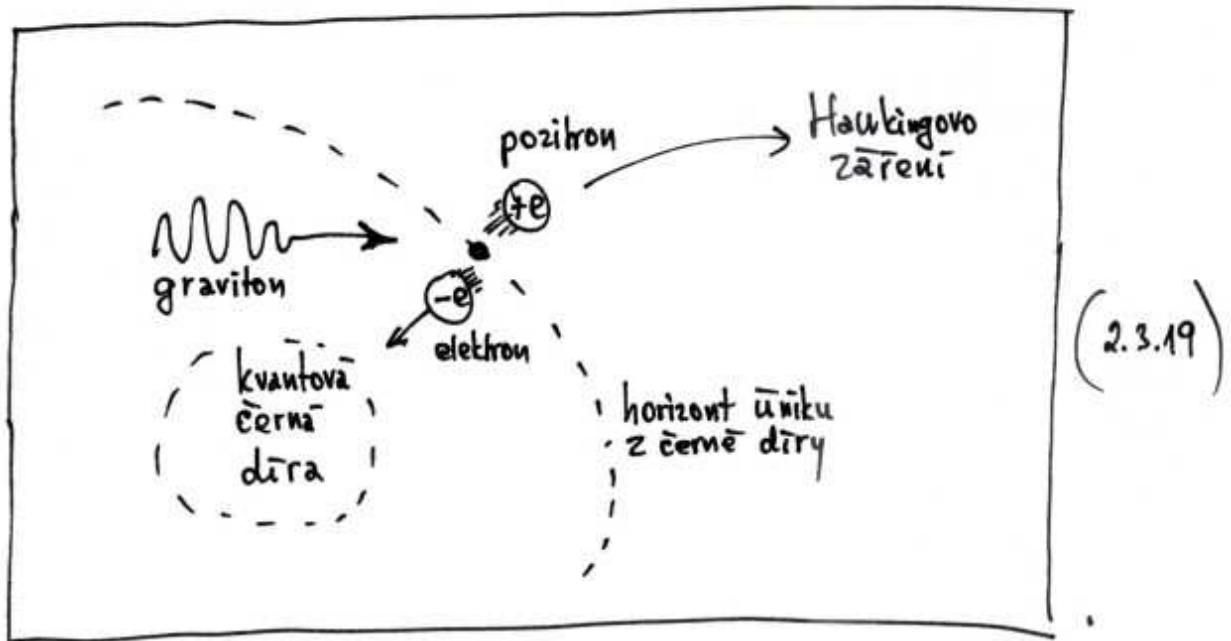 pozitron
Haukingovo
záření
+e
graviton
-e
elektron
kvantová
černá
díra
horizont úniku
z černé díry
(2.3.19)